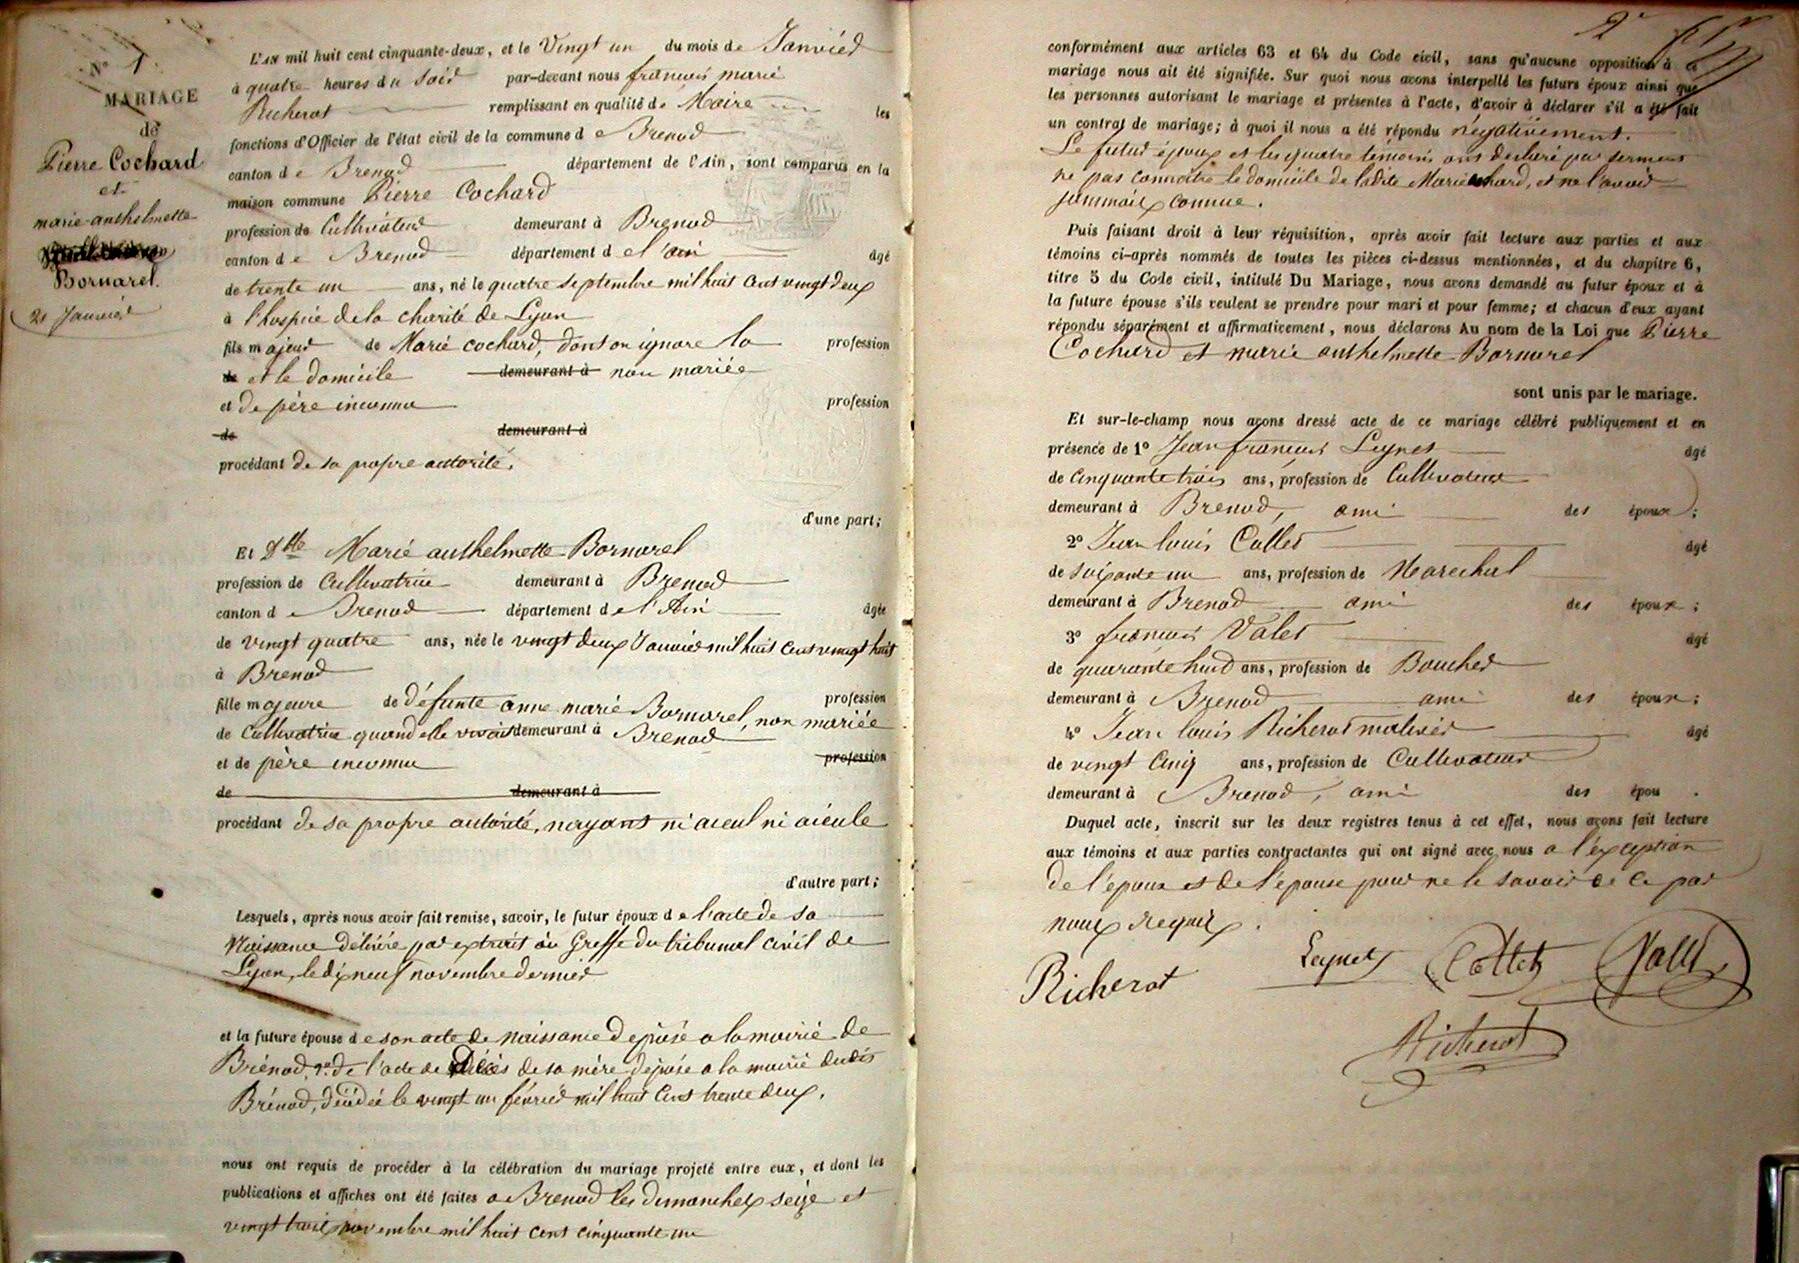 N° 1.
MARIAGE
de
Pierre Cochard
et
marie-anthelmette
Bornarel.
21 Janvier
L'AN mil huit cent cinquante-deux, et le Vingt un du mois de Janvier
à quatre heures du Soir par-devant nous françois marie
Richerot remplissant en qualité de Maire les
fonctions d'Officier de l'état civil de la commune de Brenod
canton de Brenod département de l'Ain, sont comparus en la
maison commune Pierre Cochard
profession de Cultivateur demeurant à Brenod
canton de Brenod département de l'ain âgé
de trente un ans, né le quatre septembre mil huit Cent vingt deux
à l'hospice de la charité de Lyon
fils majeur de Marie cochard, dont on ignore la profession
de et le domicile demeurant à non mariée
et de père inconnu profession
de demeurant à
procédant de sa propre autorité.
d'une part;
Et Dlle Marie anthelmette Bornarel
profession de Cultivatrice demeurant à Brenod
canton de Brenod département de l'Ain âgée
de vingt quatre ans, née le vingt deux Janvier mil huit Cent vingt huit
à Brenod
fille majeure de défunte anne marie Bornarel, non mariée profession
de Cultivatrice quand elle vivait demeurant à Brenod
et de père inconnu profession
de demeurant à
procédant de sa propre autorité, n'ayant ni aieul ni aieule
d'autre part;
Lesquels, après nous avoir fait remise, savoir, le futur époux de l'acte de sa
Naissance délivré par extrait au Greffe du tribunal civil de
Lyon, le dix neuf novembre dernier
et la future épouse de son acte de Naissance déposé a la mairie de
Brénod, 2° de l'acte de Décès de sa mère déposé a la mairie dudit
Brénod, décédée le vingt un février mil huit Cent trente deux.
nous ont requis de procéder à la célébration du mariage projeté entre eux, et dont les
publications et affiches ont été faites a Brenod les dimanches seize et
vingt trois novembre mil huit cent cinquante un
2e
conformément aux articles 63 et 64 du Code civil, sans qu'aucune opposition à ce
mariage nous ait été signifiée. Sur quoi nous avons interpellé les futurs époux ainsi que
les personnes autorisant le mariage et présentes à l'acte, d'avoir à déclarer s'il a été fait
un contrat de mariage; à quoi il nous a été répondu négativement.
Le futur époux et les quatre témoins ont declaré par serment
ne pas connaître le domicile de ladite Marie chard, et ne l'avoir
jammais connue.
Puis faisant droit à leur réquisition, après avoir fait lecture aux parties et aux
témoins ci-après nommés de toutes les pièces ci-dessus mentionnées, et du chapitre 6,
titre 5 du Code civil, intitulé Du Mariage, nous avons demandé au futur époux et à
la future épouse s'ils veulent se prendre pour mari et pour femme; et chacun d'eux ayant
répondu séparément et affirmativement, nous déclarons Au nom de la Loi que Pierre
Cochard et marie anthelmette Bornarel
sont unis par le mariage.
Et sur-le-champ nous avons dressé acte de ce mariage célébré publiquement et en
présence de 1° Jean françois Leynet âgé
de cinquante trois ans, profession de Cultivateur
demeurant à Brenod, ami des époux;
2° Jean louis Collet âgé
de soixante un ans, profession de Marechal
demeurant à Brenod ami des époux;
3° françois Valet âgé
de quarante huit ans, profession de Boucher
demeurant à Brenod ami des époux;
4° Jean louis Richerot âgé
de vingt Cinq ans, profession de Cultivateur
demeurant à Brenod, ami des épou .
Duquel acte, inscrit sur les deux registres tenus à cet effet, nous avons fait lecture
aux témoins et aux parties contractantes qui ont signé avec nous a l'exception
de l'époux et de l'épouse pour ne le savoir de ce par
nous requis.
Richerot Leynet Collet Valet
Richerot